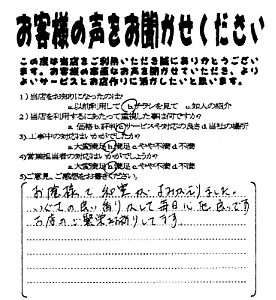 お客様の声をお聞かせください
この度は当店をご利用いただき誠にありがとうござい
ます。お客様の率直なお声を聞かせていただき、より
よいサービスとお店作りに活かしたいと思います。
1)当店をお知りになったのは?
a.以前利用して b.チラシを見て c.知人の紹介
2)当店を利用するにあたって重視した事は何ですか?
a.価格 b.評判 c.サービスや対応の良さ d.当社の場所
3)工事中の対応はいかがでしたか?
a.大変満足 b.満足 c.やや不満 d.不満
4)営業担当者の対応はいかがでしょうか?
a.大変満足 b.満足 c.やや不満 d.不満
5)ご意見、ご感想をお書きください。
お陰様で和室が よみがえりました。
いぐさの良い香りがして毎日心地良いです
お店のご繁栄お祈りしてます